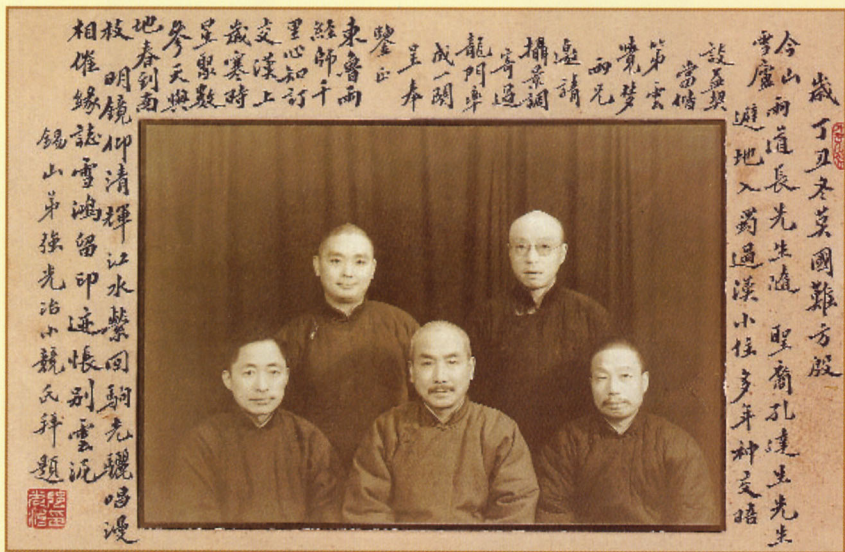 歲丁丑冬莫國難方殷
今山
雪廬
兩道長先生隨 聖裔孔達生先生
避地入蜀過漢小住多年神交晤
設盃契
當偕
第雲
覺夢
兩兄
邀請
攝景調
寄過
龍門率
成一闋
呈奉
鑒正
東魯兩
經師千
里心知訂
交漢上
歲寒時
星聚數
參天與
地春到南
枝 明鏡仰清輝江水縈回駒光驪唱漫
相催緣誌雪鴻留印迹悵別雲泥
錫山弟強光治小競氏拜題